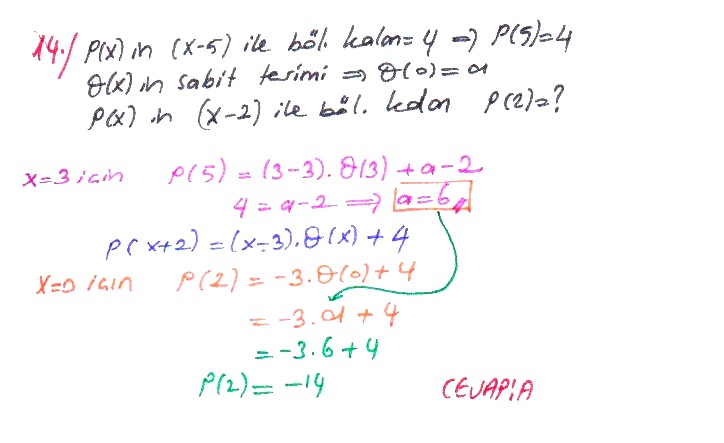 14./ P(x) in (x-5) ile böl. kalan= 4 => P(5)=4
Q(x) in sabit terimi => Q(0)= a
P(x) in (x-2) ile böl. kalan P(2)=?
x=3 için P(5) = (3-3). Q(3) + a-2
4 = a-2 => a=6//
P(x+2) = (x-3).Q(x) + 4
x=0 için P(2) = -3.Q(0)+ 4
= -3.a + 4
= -3.6+4
P(2)= -14
CEVAP:A